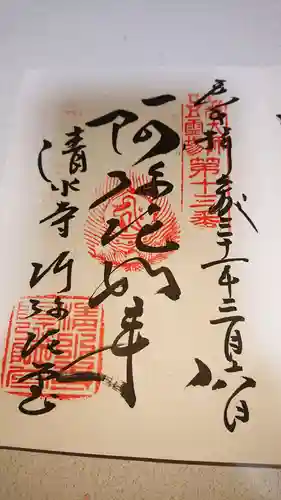 奉拝 平成三十一年三月十八日
第十三番
阿弥陀如来
清水寺 阿弥陀堂